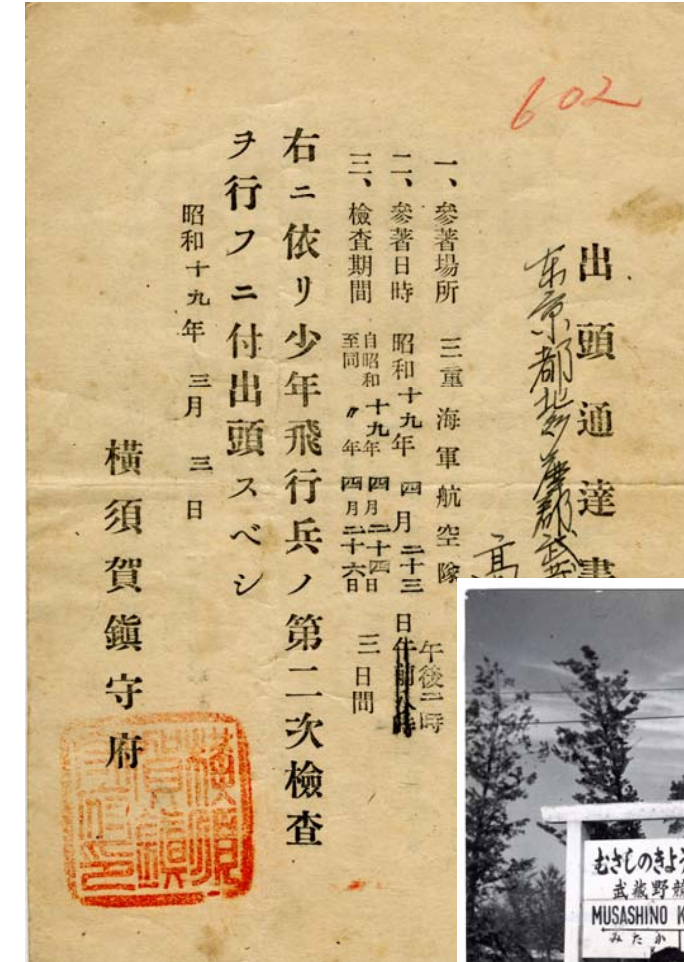 602
出頭通達書
東京都北多摩郡武
高
一、參著場所 三重海軍航空隊
二、參著日時 昭和十九年四月二十三日午後二時
三、檢査期間 自昭和十九年四月二十四日
至同〃年四月二十六日 三日間
右ニ依リ少年飛行兵ノ第二次檢査
ヲ行フニ付出頭スベシ
昭和十九年三月三日
横須賀鎭守府
むさしのきよ
武蔵野競
MUSASHINO K
みたか